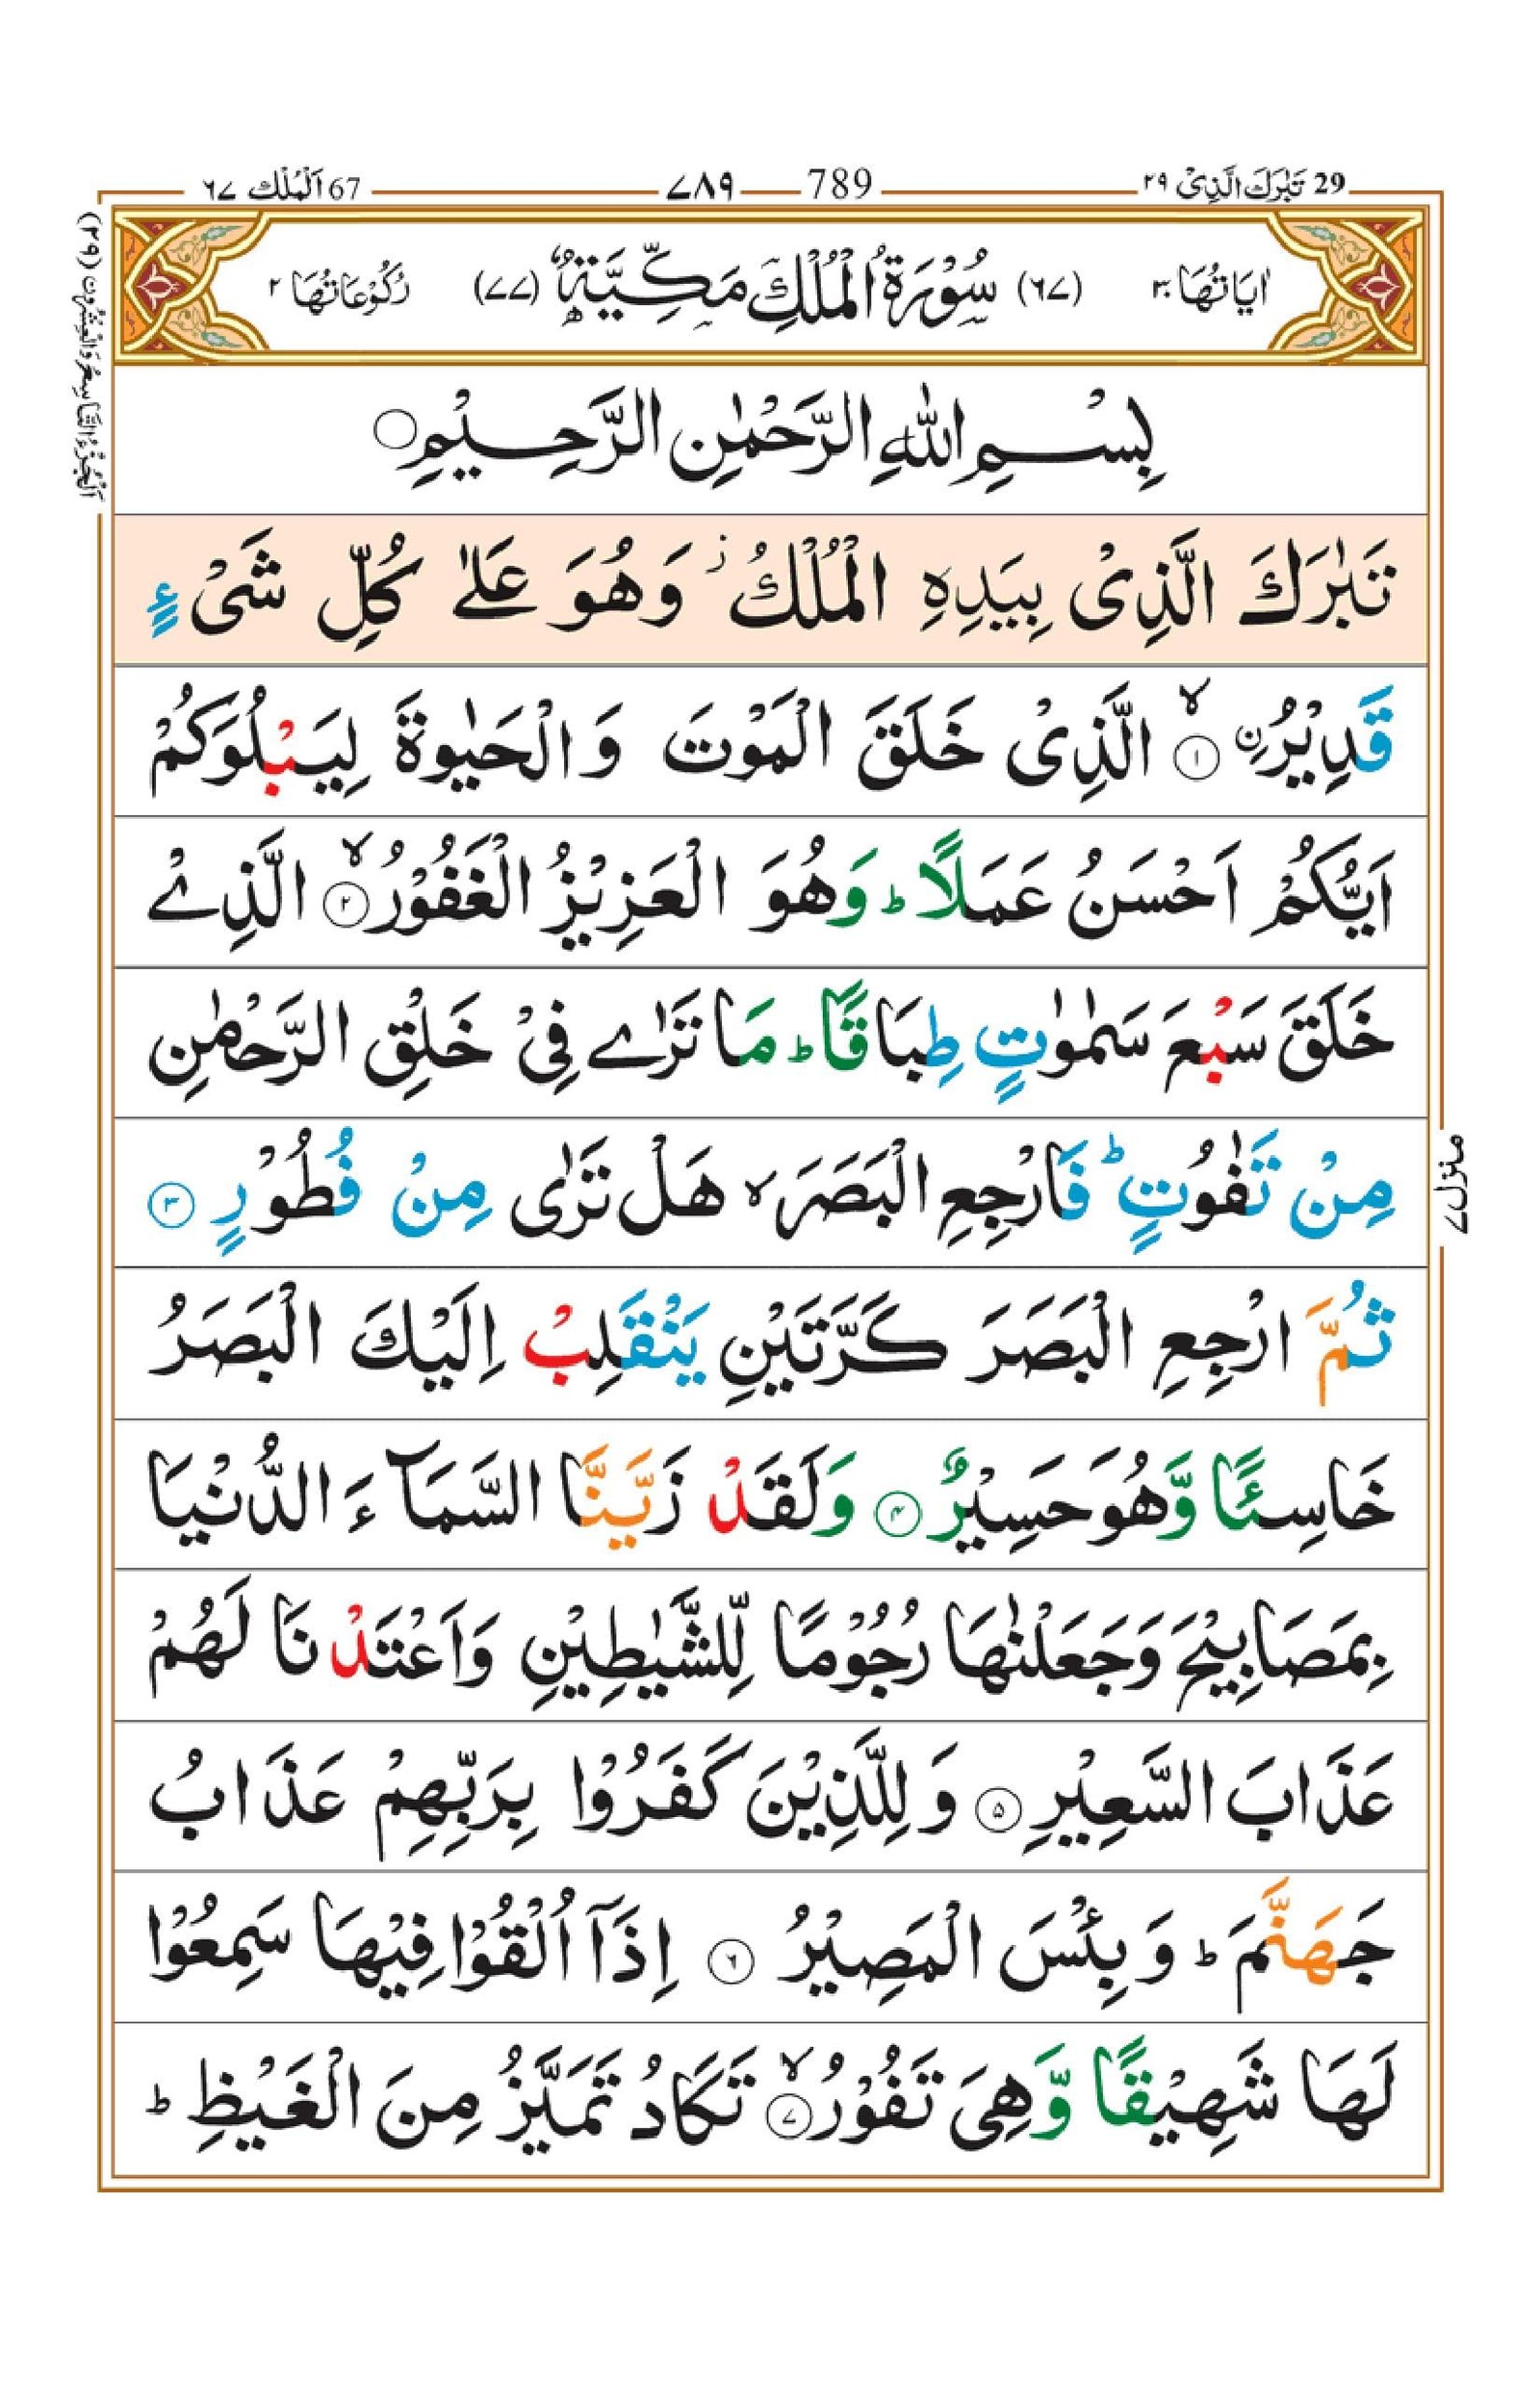 29 تَبٰرَكَ الَّذِیْ ٢٩
789 ٧٨٩
67 اَلْمُلْك ٦٧
اٰیَاتُهَا ٣٠
(٦٧) سُوْرَةُ الْمُلْكِ مَكِّیَّةٌ (٧٧)
رُكُوْعَاتُهَا ٢
اَلْجُزْءُ التَّاسِعُ وَالْعِشْرُون (٢٩)
بِسْمِ اللّٰهِ الرَّحْمٰنِ الرَّحِیْمِ
تَبٰرَكَ الَّذِیْ بِیَدِهِ الْمُلْكُ ؗ وَهُوَ عَلٰی كُلِّ شَیْءٍ
قَدِیْرُ ۨ ۙ﴿١﴾ الَّذِیْ خَلَقَ الْمَوْتَ وَ الْحَیٰوةَ لِیَبْلُوَكُمْ
اَیُّكُمْ اَحْسَنُ عَمَلًا ؕ وَهُوَ الْعَزِیْزُ الْغَفُوْرُ ۙ﴿٢﴾ الَّذِیْ
خَلَقَ سَبْعَ سَمٰوٰتٍ طِبَاقًا ؕ مَا تَرٰی فِیْ خَلْقِ الرَّحْمٰنِ
مِنْ تَفٰوُتٍ ؕ فَارْجِعِ الْبَصَرَ ۙ هَلْ تَرٰی مِنْ فُطُوْرٍ ﴿٣﴾
ثُمَّ ارْجِعِ الْبَصَرَ كَرَّتَیْنِ یَنْقَلِبْ اِلَیْكَ الْبَصَرُ
خَاسِئًا وَّهُوَ حَسِیْرٌ ﴿٤﴾ وَلَقَدْ زَیَّنَّا السَّمَآءَ الدُّنْیَا
بِمَصَابِیْحَ وَجَعَلْنٰهَا رُجُوْمًا لِّلشَّیٰطِیْنِ وَاَعْتَدْنَا لَهُمْ
عَذَابَ السَّعِیْرِ ﴿٥﴾ وَ لِلَّذِیْنَ كَفَرُوْا بِرَبِّهِمْ عَذَابُ
جَهَنَّمَ ؕ وَ بِئْسَ الْمَصِیْرُ ﴿٦﴾ اِذَاۤ اُلْقُوْا فِیْهَا سَمِعُوْا
لَهَا شَهِیْقًا وَّهِیَ تَفُوْرُ ۙ﴿٧﴾ تَكَادُ تَمَیَّزُ مِنَ الْغَیْظِ ؕ
منزل ٧